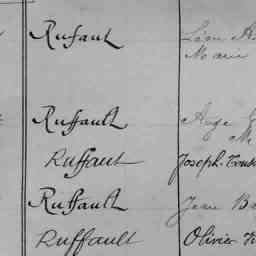 Rufaut Léon
Marie
Ruffault Ange
Ruffaut Joseph
Ruffault Jean
Ruffault Olivier